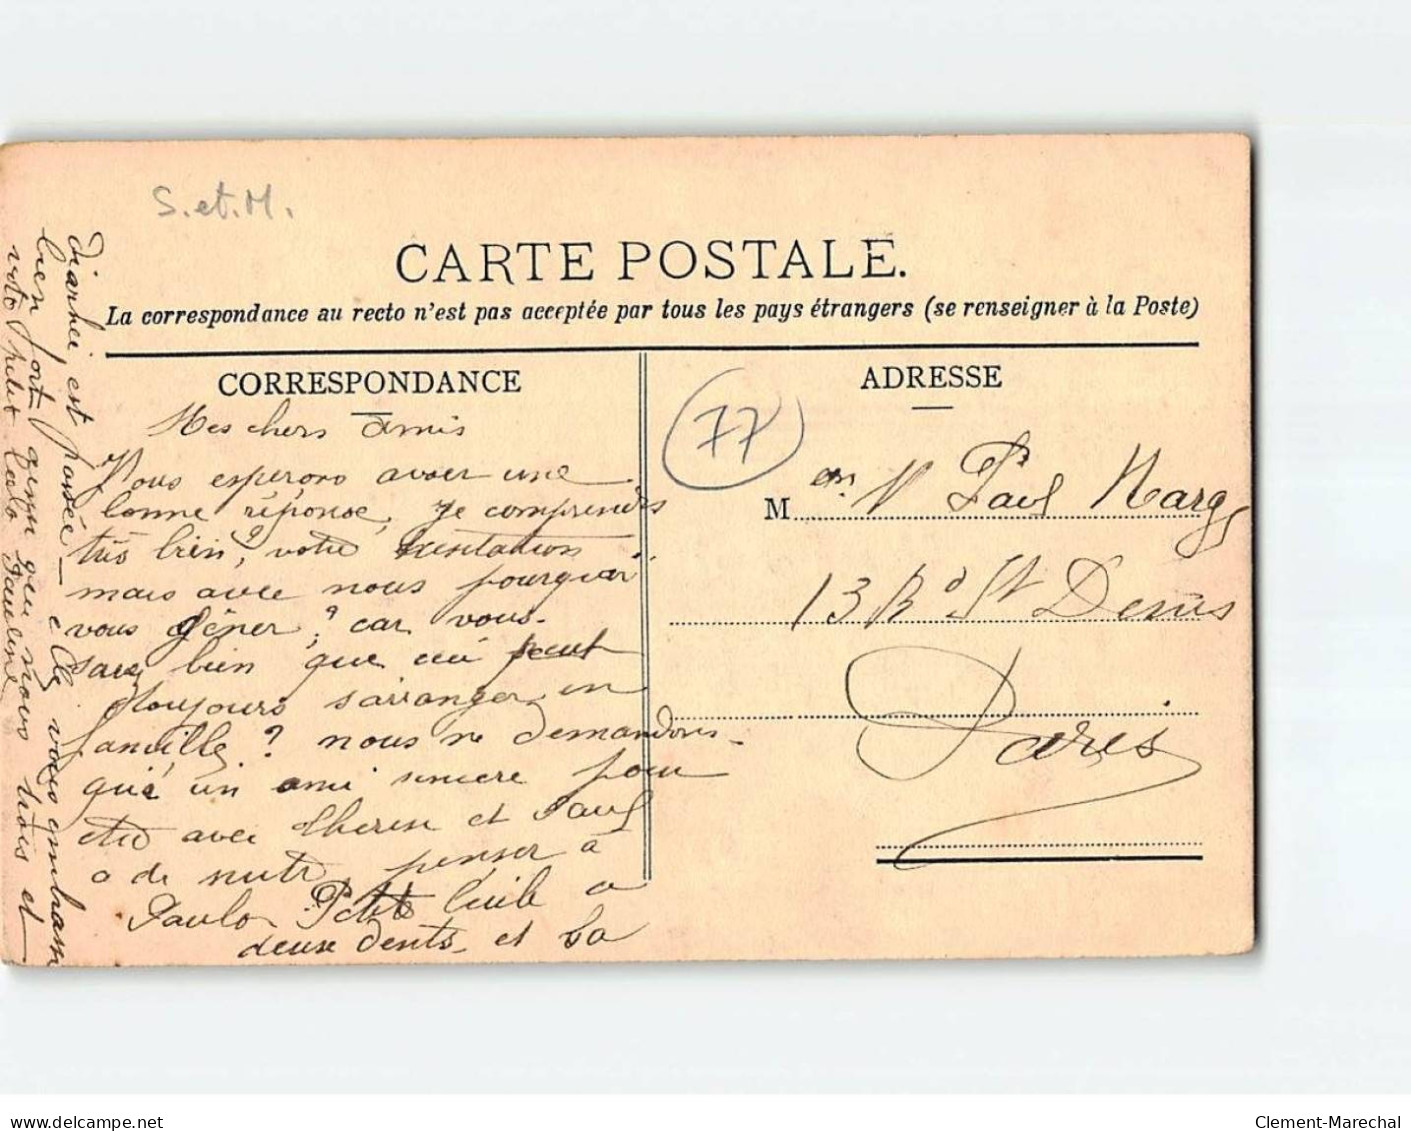 S. et. M.
CARTE POSTALE.
La correspondance au recto n'est pas acceptée par tous les pays étrangers (se renseigner à la Poste)
CORRESPONDANCE
ADRESSE
77
Mes chers Amis
Nous esperons avoir une
bonne réponse, je comprends
très bien, votre hésitation
mais avec nous pourquoi
vous gêner? car vous
savez bien que peut
toujours s'arranger en
famille? nous ne demandons
qu'a un ami sincere pour
avec Therese et Paul
a de penser à
Paulo Petite Cecile a
deux dents et sa
diarhée est passée elle vous embrasse
bien fort que nous trois et
votre petit Lolo Pauline
M Paul Marg
13 Bd St Denis
Paris
delcampe.net
Clement-Marechal